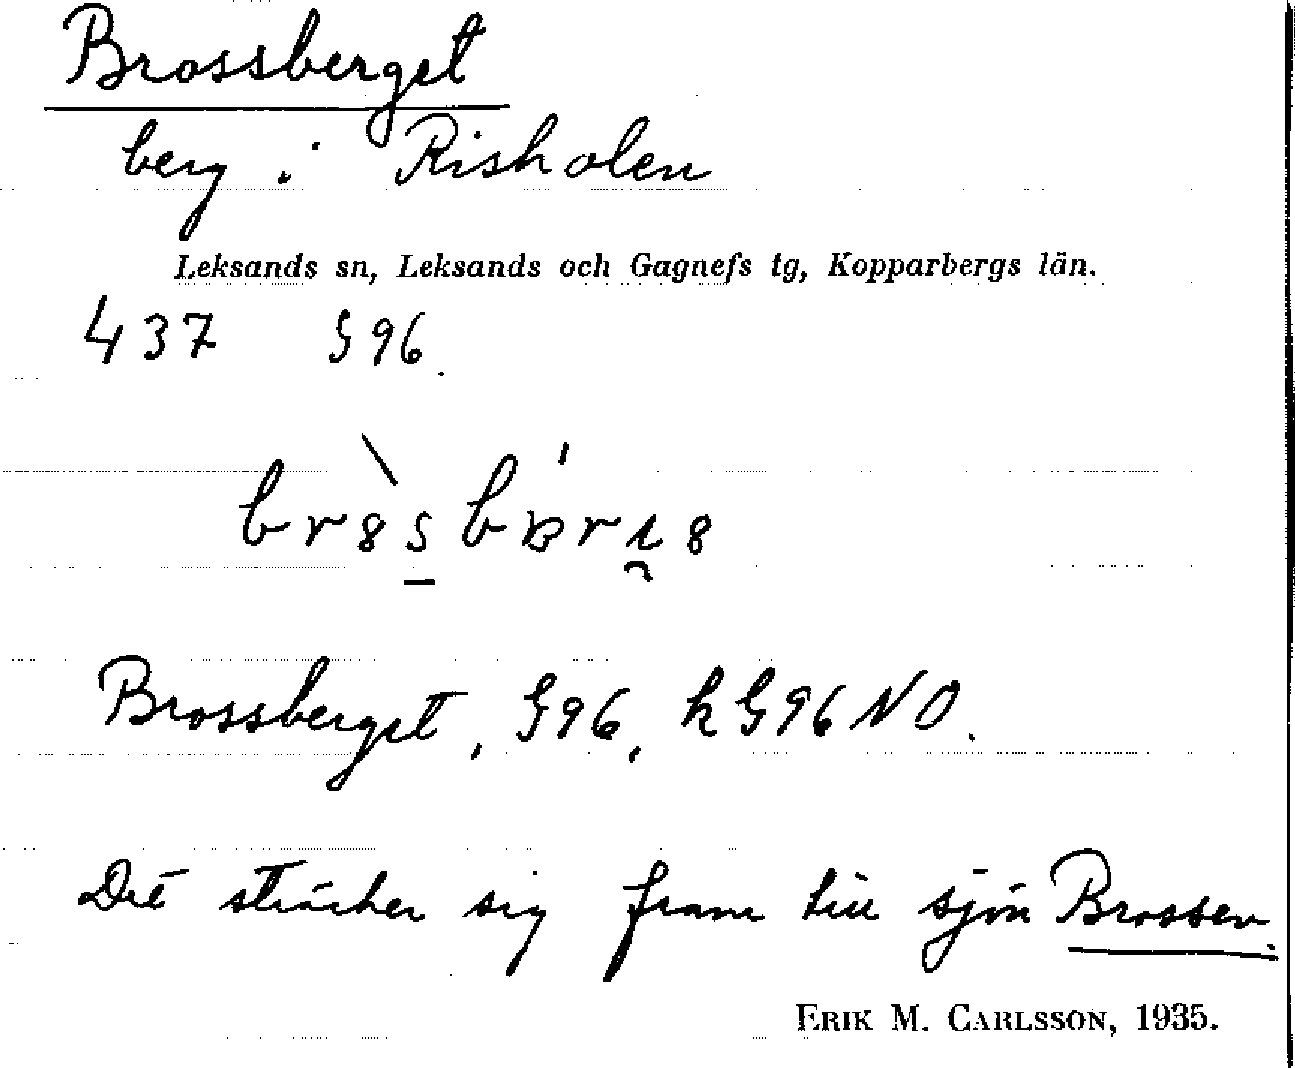 Brossberget
berg i Risholen
Leksands sn, Leksands och Gagnefs tg, Kopparbergs län.
437 G96.
Brossberget, G96, kG96NO.
Det sträcker sig fram till sjön Brossen.
ERIK M. CARLSSON, 1935.